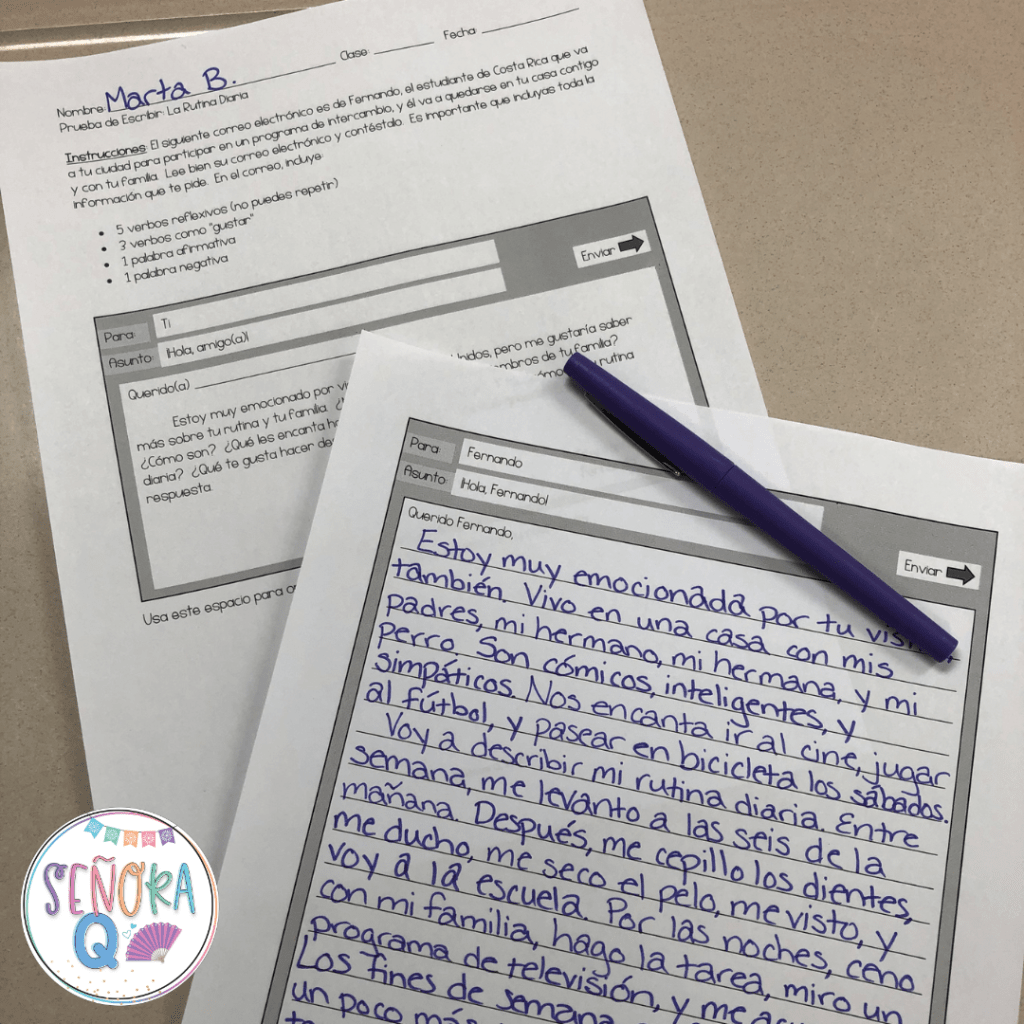 Nombre: Marta B. Clase: Fecha:
Prueba de Escribir: La Rutina Diaria
Instrucciones: El siguiente correo electrónico es de Fernando, el estudiante de Costa Rica que va
a tu ciudad para participar en un programa de intercambio, y él va a quedarse en tu casa contigo
y con tu familia. Lee bien su correo electrónico y contéstalo. Es importante que incluyas toda la
información que te pide. En el correo, incluye:
• 5 verbos reflexivos (no puedes repetir)
• 3 verbos como "gustar"
• 1 palabra afirmativa
• 1 palabra negativa
Enviar
Para: Ti
Asunto: ¡Hola, amigo(a)!
Querido(a)
Estoy muy emocionado por pero me gustaría saber
más sobre tu rutina y tu familia. de tu familia?
¿Cómo son? ¿Qué les encanta rutina
diaria? ¿Qué te gusta hacer
respuesta.
Usa este espacio para
Para: Fernando
Asunto: ¡Hola, Fernando!
Enviar
Querido Fernando,
Estoy muy emocionada por tu
también. Vivo en una casa con mis
padres, mi hermano, mi hermana, y mi
perro. Son cómicos, inteligentes, y
simpáticos. Nos encanta ir al cine, jugar
al fútbol, y pasear en bicicleta los sábados.
Voy a describir mi rutina diaria. Entre
semana, me levanto a las seis de la
mañana. Después, me cepillo los dientes,
me ducho, me seco el pelo, me visto, y
voy a la escuela. Por las noches, ceno
con mi familia, hago la tarea, miro un
programa de televisión, y me
Los fines de semana
un poco más
SEÑORA
Q